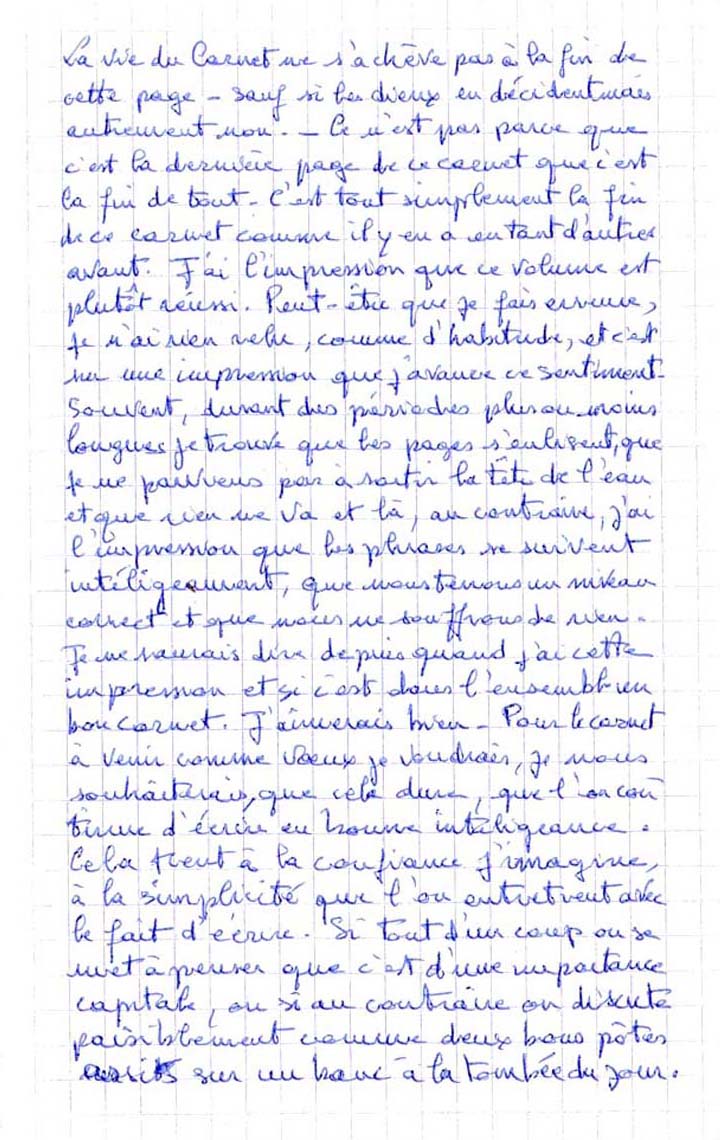 La vie du Carnet ne s'achève pas à la fin de
cette page - sauf si les dieux en décident mais
autrement non. - Ce n'est pas parce que
c'est la dernière page de ce carnet que c'est
la fin de tout - C'est tout simplement la fin
de ce carnet comme il y en a eu tant d'autres
avant. J'ai l'impression que ce volume est
plutôt réussi. Peut-être que je fais erreur,
je n'ai rien relu, comme d'habitude, et c'est
sur une impression que j'avance ce sentiment.
Souvent, durant des périodes plus ou moins
longues je trouve que les pages s'enlisent, que
je ne parviens pas à sortir la tête de l'eau
et que rien ne va et là, au contraire, j'ai
l'impression que les phrases se suivent
intéligeamment, que nous tenons un niveau
correct et que nous ne souffrons de rien.
Je ne saurais dire depuis quand j'ai cette
impression et si c'est dans l'ensemble un
bon carnet. J'aimerais bien - Pour le carnet
à venir comme vœux je voudrais, je nous
souhaiterais, que cela dure, que l'on con
tinue d'écrire en bonne intéligeance.
Cela tient à la confiance j'imagine,
à la simplicité que l'on entretient avec
le fait d'écrire. Si tout d'un coup on se
met à penser que c'est d'une importance
capitale, ou si au contraire on discute
paisiblement comme deux bons pôtes
assis sur un banc à la tombée du jour.